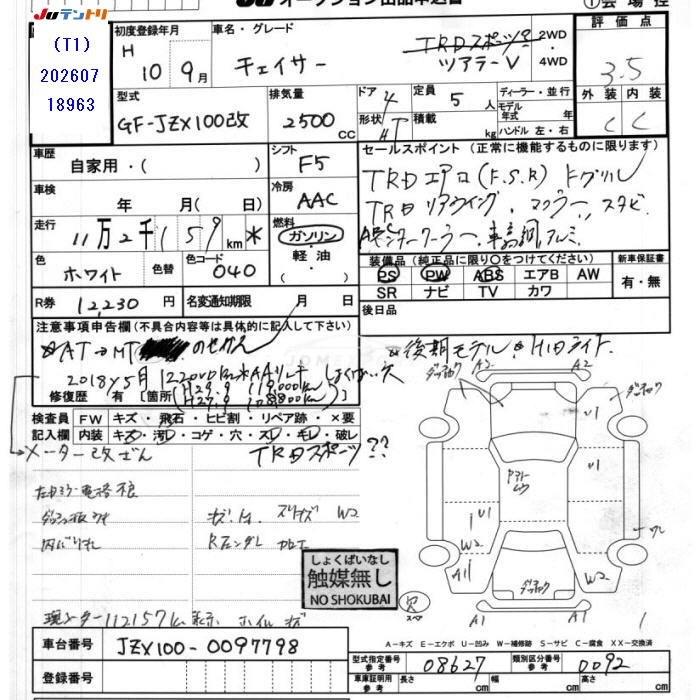 JUテントリ
オークション出品申込書
①会場控
(T1)
202607
18963
初度登録年月
H 10 9月
車名・グレード
チェイサー
TRDスポーツ?
ツアラーV
2WD
4WD
評価点
3.5
外装 内装
C C
型式
GF-JZX100改
排気量
2500 cc
ドア 4
形状 HT
定員 5 人
積載 kg
ディーラー・並行
モデル年式 年
ハンドル 左・右
車歴
自家用・( )
シフト
F5
セールスポイント (正常に機能するものに限ります)
TRDエアロ(F.S.R)
TRDリアウイング、マフラー、スタビ
車検
年 月( 日)
冷房
AAC
走行
11万2千159km *
燃料
ガソリン
軽・油
( )
インタークーラー、車高調 アルミ
色
ホワイト
色替
色コード
040
装備品 (純正品に限り○をつけてください)
PS PW ABS エアB AW
SR ナビ TV カワ
新車保証書
有・無
R券 12,230 円
名変通知期限 月 日
後日品
注意事項申告欄 (不具合内容等は具体的に記入して下さい)
AT→MT のせかえ
☆後期モデル ☆HIDライト
2018y5月 122000km*AAリレキ しょくばい穴
H29.9 119,000km
H27.9 108,800km
修復歴 有 [箇所 ]
検査員記入欄
FW キズ・飛石・ヒビ割・リペア跡・×要
内装 キズ・汚レ・コゲ・穴・スレ・キレ・破レ
メーター改ざん TRDスポーツ??
キズ、 スリキズ W2
Rフェンダー 加工
しょくばいなし
触媒無し
NO SHOKUBAI
現メーター112157km表示 ホイルキズ
A2
A2
U1
U1
U1
W2
W2
A1
A1
A1
穴
スペ
A-キズ E-エクボ U-凹み W-補修跡 S-サビ C-腐食 XX-交換済
車台番号
JZX100-0097798
登録番号
型式指定番号 参考
08627
類別区分番号 参考
0092
車庫証明用 参考
長さ cm
幅 cm
高さ cm